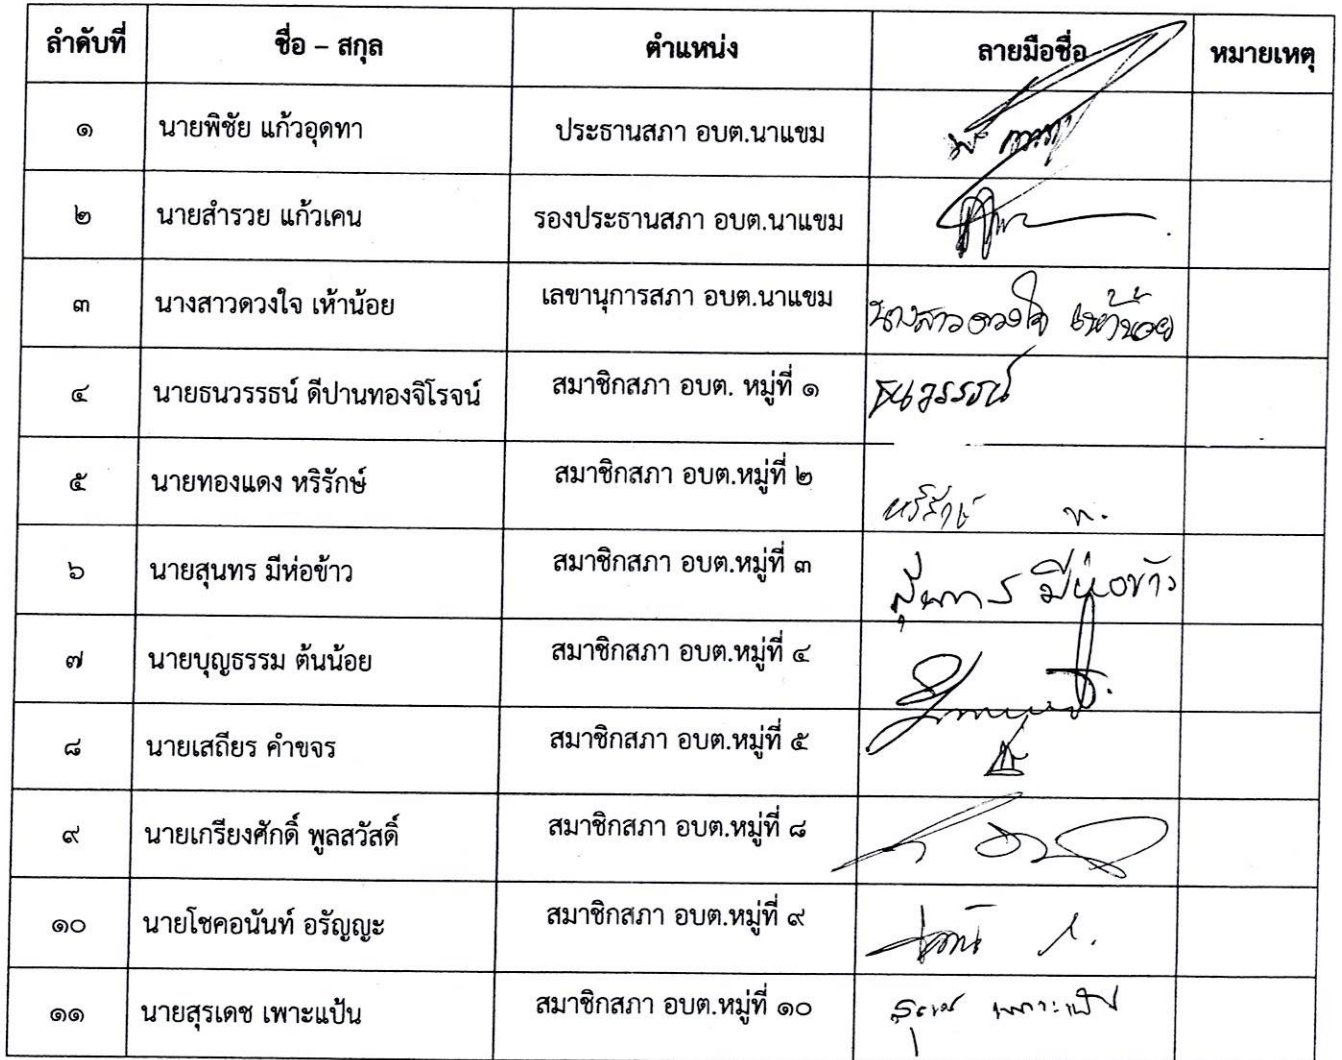 ลำดับที่ ชื่อ – สกุล ตำแหน่ง ลายมือชื่อ หมายเหตุ
๑ นายพิชัย แก้วอุดทา ประธานสภา อบต.นาแขม
๒ นายสำรวย แก้วเคน รองประธานสภา อบต.นาแขม
๓ นางสาวดวงใจ เห้าน้อย เลขานุการสภา อบต.นาแขม นางสาวดวงใจ เห้าน้อย
๔ นายธนวรรธน์ ดีปานทองจิโรจน์ สมาชิกสภา อบต. หมู่ที่ ๑ ธนวรรธน์
๕ นายทองแดง หริรักษ์ สมาชิกสภา อบต.หมู่ที่ ๒ หริรักษ์ ท.
๖ นายสุนทร มีห่อข้าว สมาชิกสภา อบต.หมู่ที่ ๓ สุนทร มีห่อข้าว
๗ นายบุญธรรม ต้นน้อย สมาชิกสภา อบต.หมู่ที่ ๔
๘ นายเสถียร คำขจร สมาชิกสภา อบต.หมู่ที่ ๕
๙ นายเกรียงศักดิ์ พูลสวัสดิ์ สมาชิกสภา อบต.หมู่ที่ ๘
๑๐ นายโชคอนันท์ อรัญญะ สมาชิกสภา อบต.หมู่ที่ ๙
๑๑ นายสุรเดช เพาะแป้น สมาชิกสภา อบต.หมู่ที่ ๑๐ สุรเดช เพาะแป้น